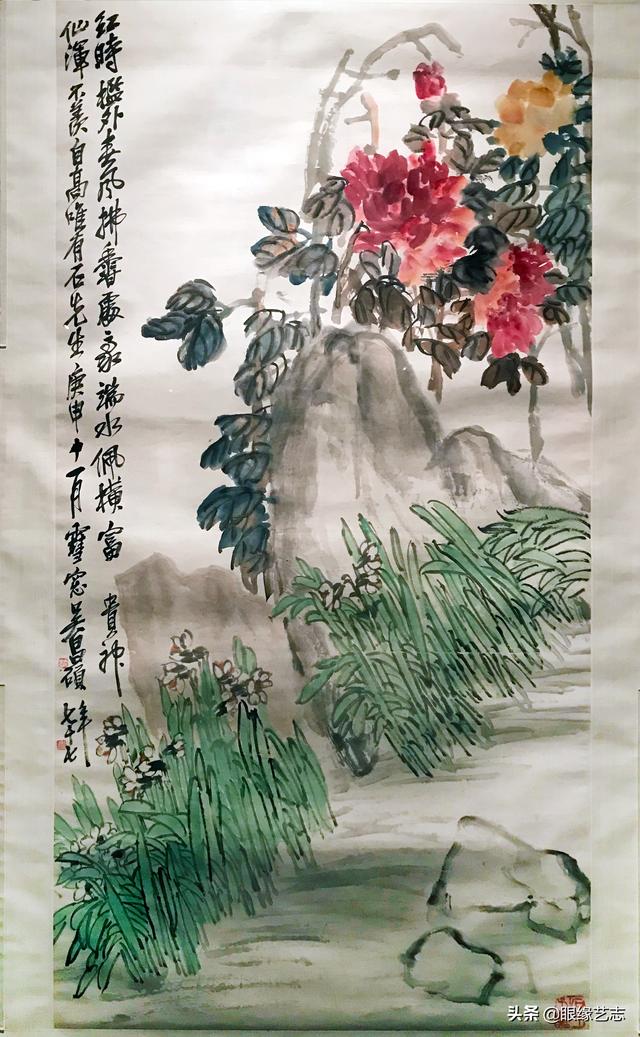 紅時檻外春風拂香處豪端水佩橫富貴神
仙渾不羨自高唯有石先生庚申十一月雪窓吳昌碩年七十七
头条 @眼缘艺志